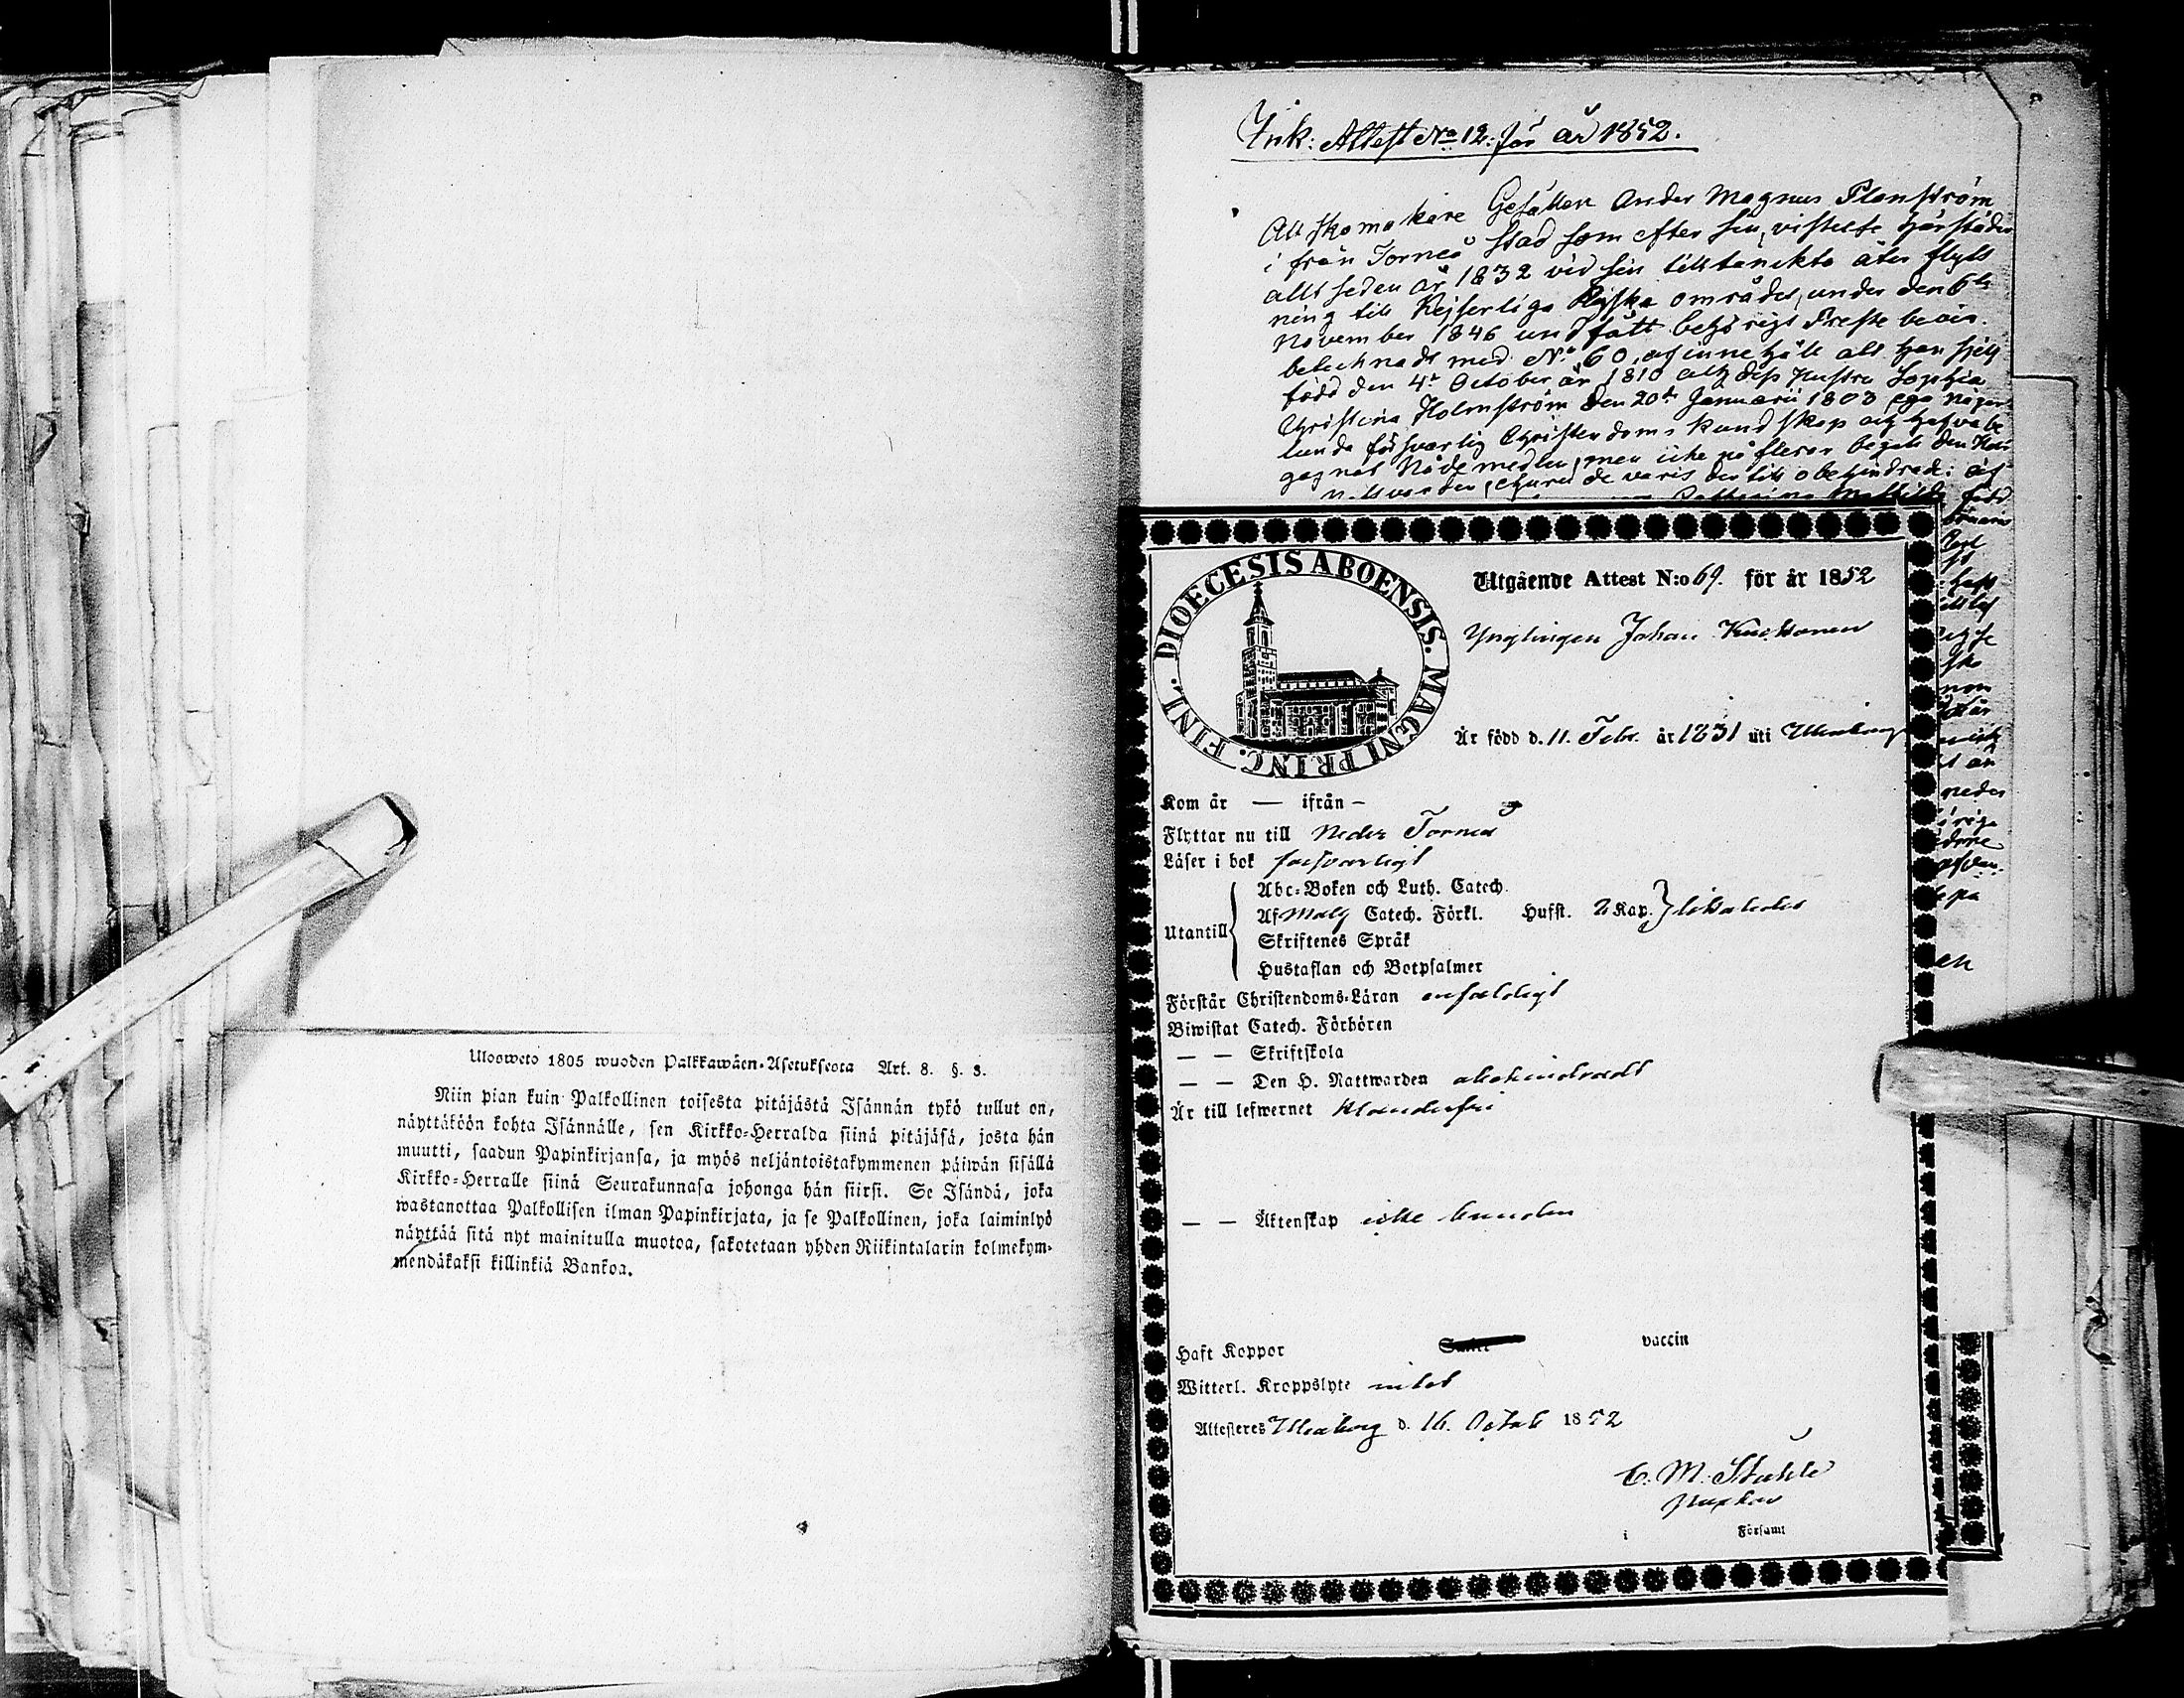 Ulosweto 1805 wuoden Palkkawäen-Asetuksesta Art. 8. §. 3.
Niin pian kuin Palkollinen toisesta pitäjästä Isännän tykö tullut on,
näyttäköön kohta Isännälle, sen Kirkko-Herralda siinä pitäjäsä, josta hän
muutti, saadun Papinkirjansa, ja myös neljäntoistakymmenen päiwän sisällä
Kirkko-Herralle siinä Seurakunnasa johonga hän siirsi. Se Isändä, joka
wastanottaa Palkollisen ilman Papinkirjata, ja se Palkollinen, joka laiminlyö
näyttää sitä nyt mainitulla muotoa, sakotetaan yhden Riikintalarin kolmekym-
mendäkaksi killinkiä Bankoa.
Ink: Attest No 12: för år 1852.
Att skomakare Gesällen Anders Magnus Planström
ifrån Torneå stad som efter sin vistelse härstädes
allt sedan år 1832 vid sin tilltänckta åter flytt
ning till Kejserliga Ryska området, under den 6te
November 1846 undfått behörigt Preste bevis.
betecknadt med No 60, och innehåll att han sjelf
född den 4de October år 1810 och dess Hustru Sophia
Christina Holmström den 20de Januarii 1803 ega någor
lunda försvarlig Christendoms kundskap och hafva be
gagnat Nådemedlen, men icke på flera år begått den Hel.
nattvarden, ehuru de varit der till obehindrade: och
Catharina Mathilda född
DIOECESIS ABOENSIS. MAGNI PRINC. FINL.
Utgående Attest N:o 69. för år 1852
Ynglingen Johan
Är född d. 11. Febr. år 1831 uti Uleåborg
Kom år — ifrån —
Flyttar nu till Neder Torneå
Läser i bok försvarligt
Utantill
Abc-Boken och Luth. Catech.
Af Catech. Förkl. Hufst. 2 Kap. likaledes
Skriftenes Språk
Hustaflan och Botpsalmer
Förstår Christendoms-Läran enfaldigt
Biwistat Catech. Förhören
— — Skriftskola
— — Den H. Nattwarden obehindradt
Är till lefwernet klanderfri
— — Äktenskap icke bunden
Haft Koppor vaccin
Witterl. Kroppslyte intet
Attesteres Uleåborg d. 16. Octob 1852
C. M. Ståhle
i Församl